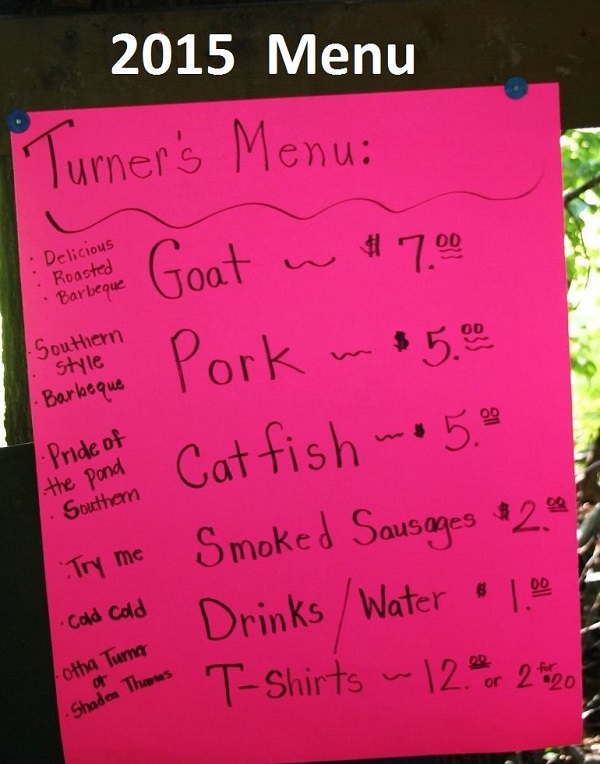 2015 Menu
Turner's Menu:
· Delicious
· Roasted
· Barbeque
Goat ~ $7.00
· Southern
· style
· Barbeque
Pork ~ $5.00
· Pride of
· the Pond
· Southern
Catfish ~ $5.00
· Try me
Smoked Sausages $2.00
· Cold Cold
Drinks/Water $1.00
· Otha Turner
or
· Shadea Thomas
T-Shirts ~ 12.00 or 2 for $20